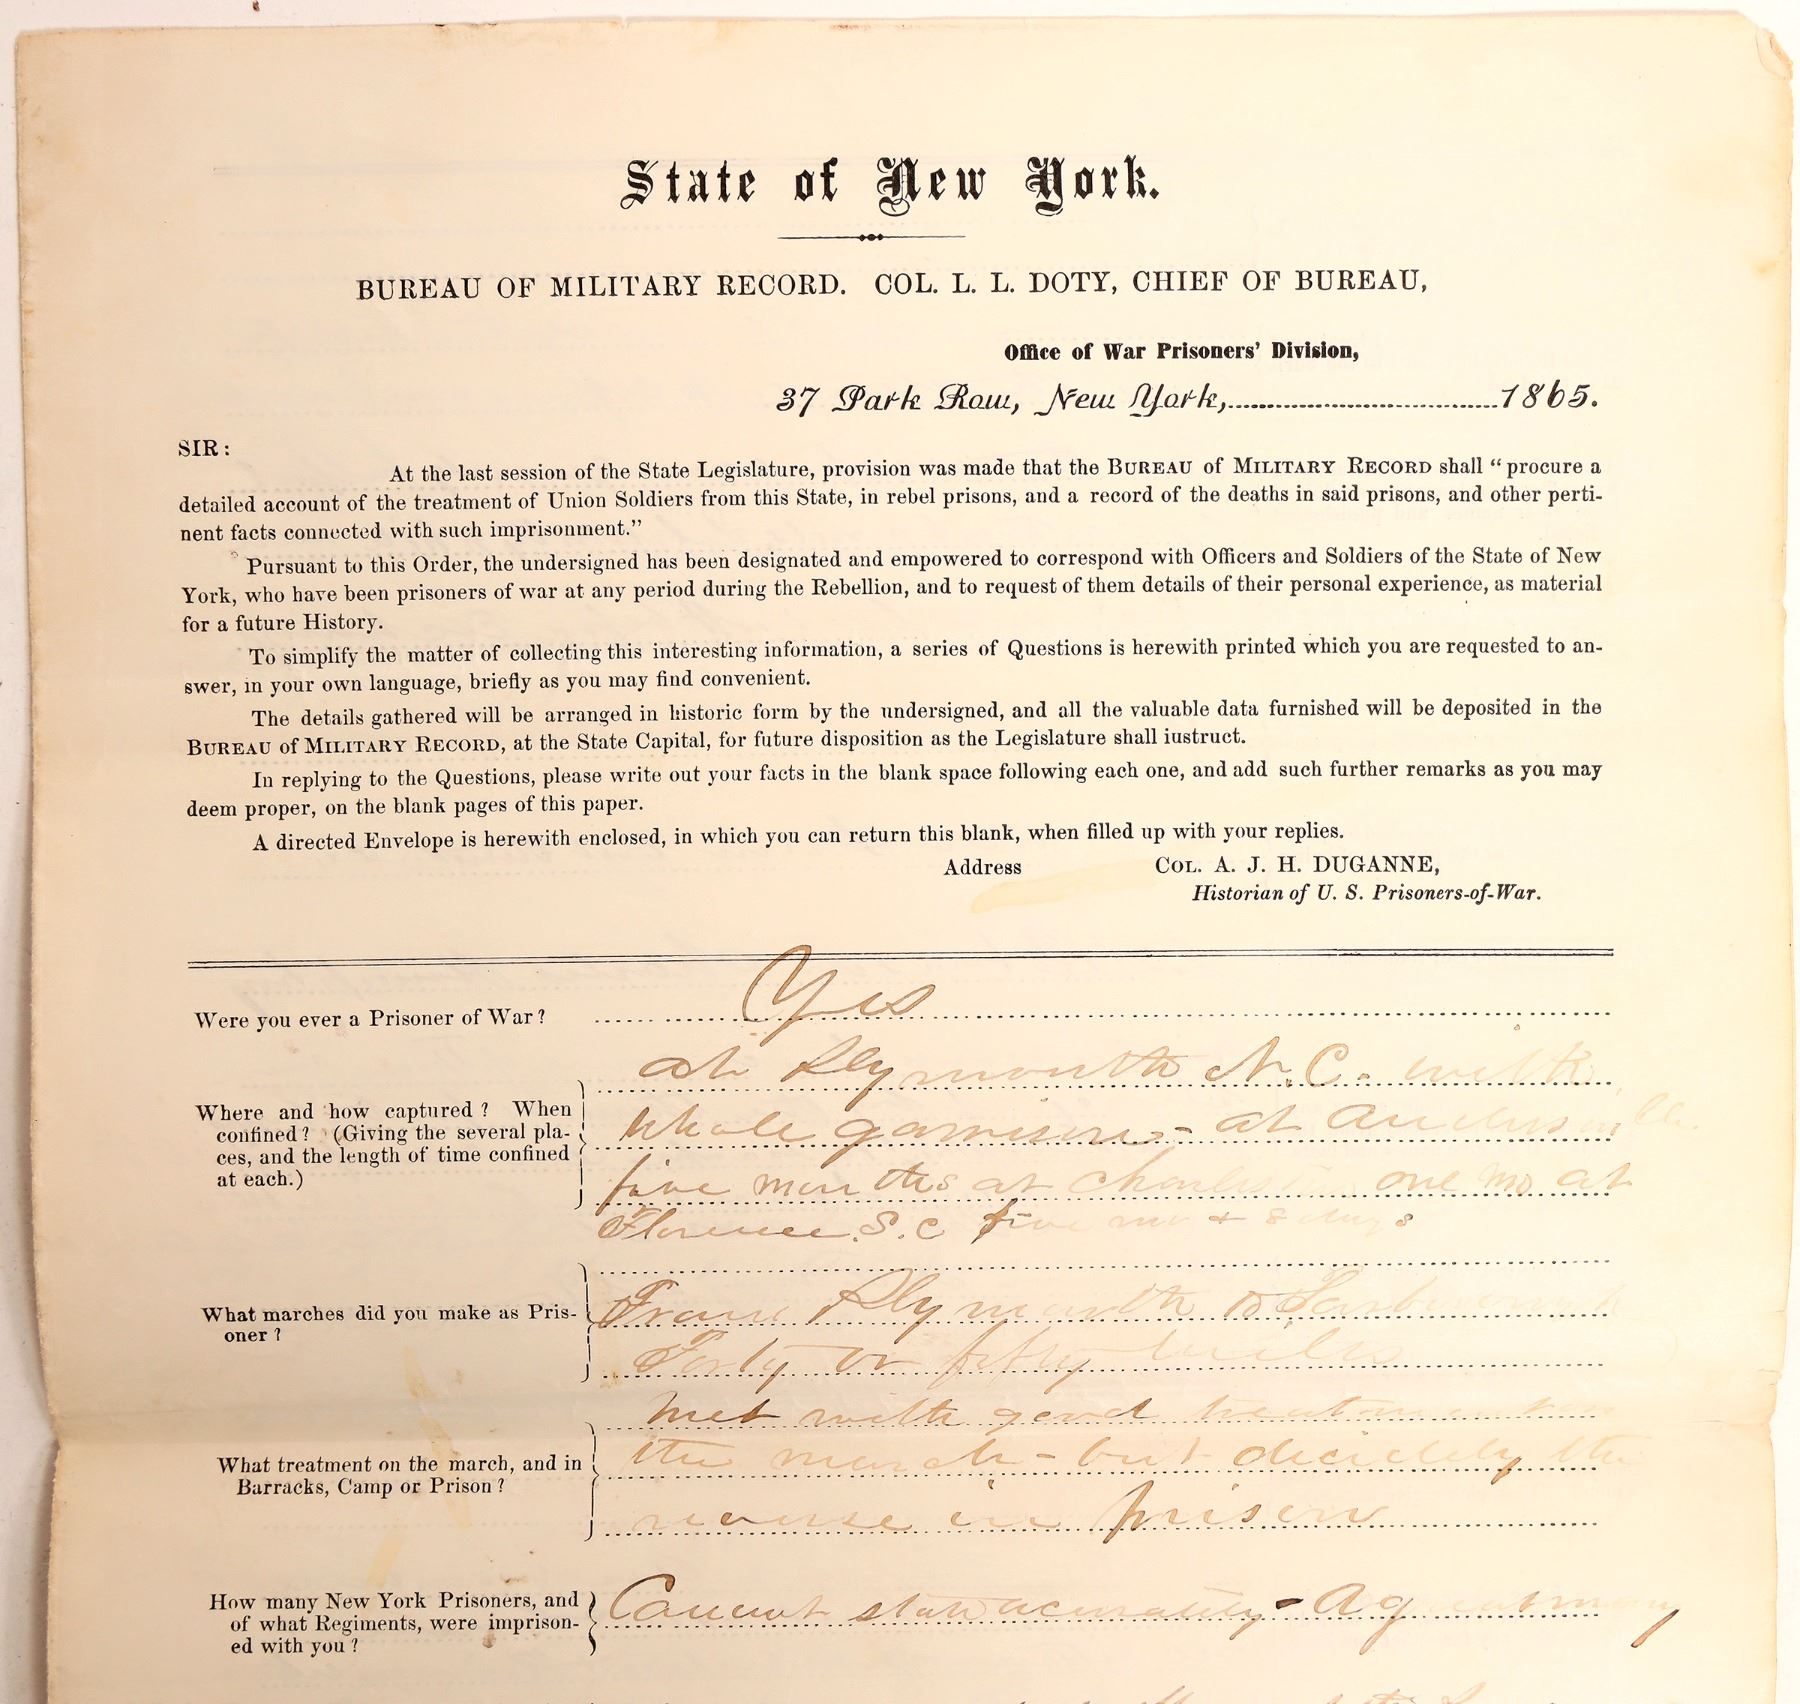 State of New York.
BUREAU OF MILITARY RECORD. COL. L. L. DOTY, CHIEF OF BUREAU,
Office of War Prisoners' Division,
37 Park Row, New York,..........1865.
SIR:
At the last session of the State Legislature, provision was made that the BUREAU of MILITARY RECORD shall "procure a
detailed account of the treatment of Union Soldiers from this State, in rebel prisons, and a record of the deaths in said prisons, and other perti-
nent facts connected with such imprisonment."
Pursuant to this Order, the undersigned has been designated and empowered to correspond with Officers and Soldiers of the State of New
York, who have been prisoners of war at any period during the Rebellion, and to request of them details of their personal experience, as material
for a future History.
To simplify the matter of collecting this interesting information, a series of Questions is herewith printed which you are requested to an-
swer, in your own language, briefly as you may find convenient.
The details gathered will be arranged in historic form by the undersigned, and all the valuable data furnished will be deposited in the
BUREAU of MILITARY RECORD, at the State Capital, for future disposition as the Legislature shall iustruct.
In replying to the Questions, please write out your facts in the blank space following each one, and add such further remarks as you may
deem proper, on the blank pages of this paper.
A directed Envelope is herewith enclosed, in which you can return this blank, when filled up with your replies.
Address COL. A. J. H. DUGANNE,
Historian of U. S. Prisoners-of-War.
Were you ever a Prisoner of War? Yes
Where and how captured? When
confined? (Giving the several pla-
ces, and the length of time confined
at each.)
at Plymouth N.C. with
whole garrison - at Andersonville
five months at Charleston one mo at
Florence S.C five mo + 8 days
What marches did you make as Pris-
oner?
From Plymouth to
Forty or fifty miles
What treatment on the march, and in
Barracks, Camp or Prison?
Met with good treatment on
the march - but decidely the
reverse in prison
How many New York Prisoners, and
of what Regiments, were imprison-
ed with you?
Cannot state acurately - A great many